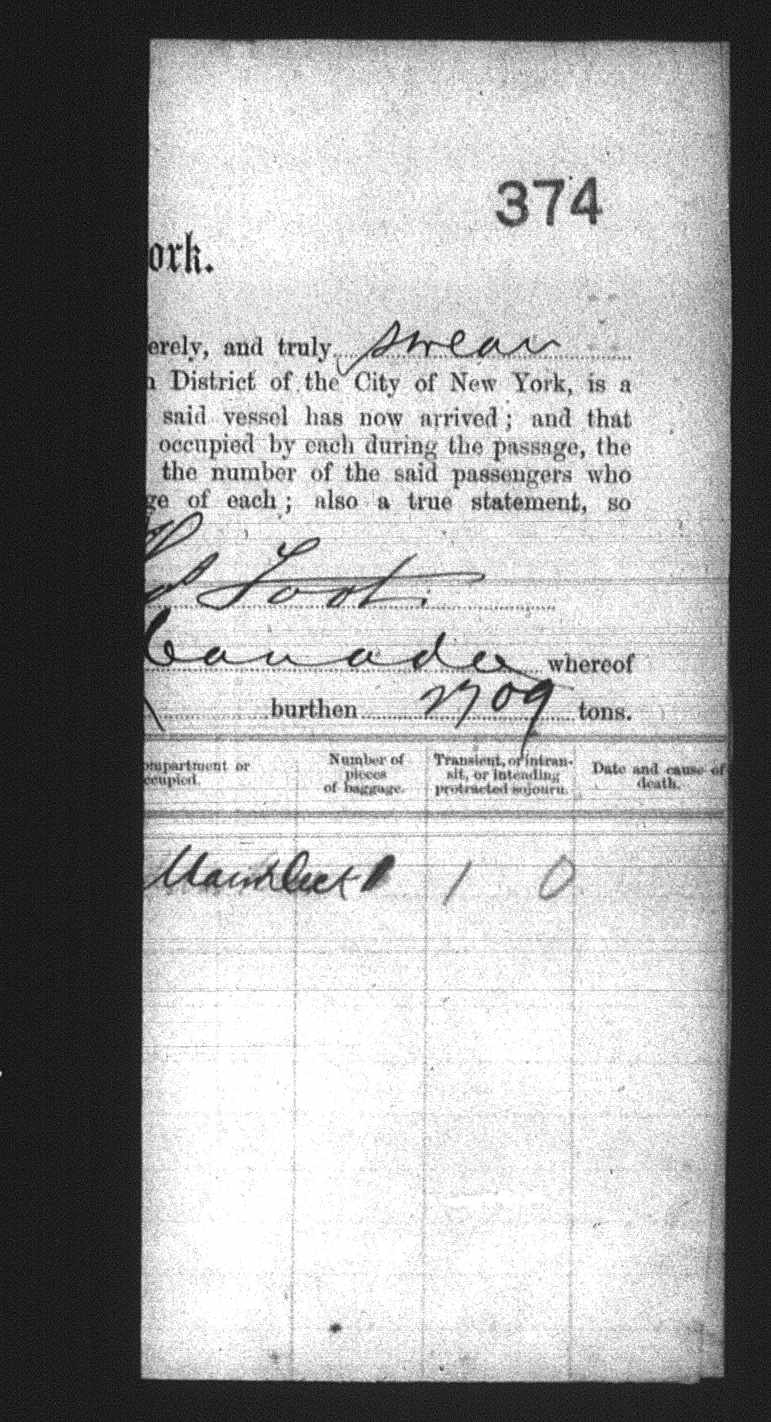 374
ork.
erely, and truly swear
n District of the City of New York, is a
said vessel has now arrived; and that
occupied by each during the passage, the
the number of the said passengers who
ge of each; also a true statement, so
Foot.
Canada whereof
burthen 2709 tons.
ompartment or
ccupied.
Number of
pieces
of baggage.
Transient, or intran-
sit, or intending
protracted sojourn.
Date and cause of
death.
Main Deck 1 0